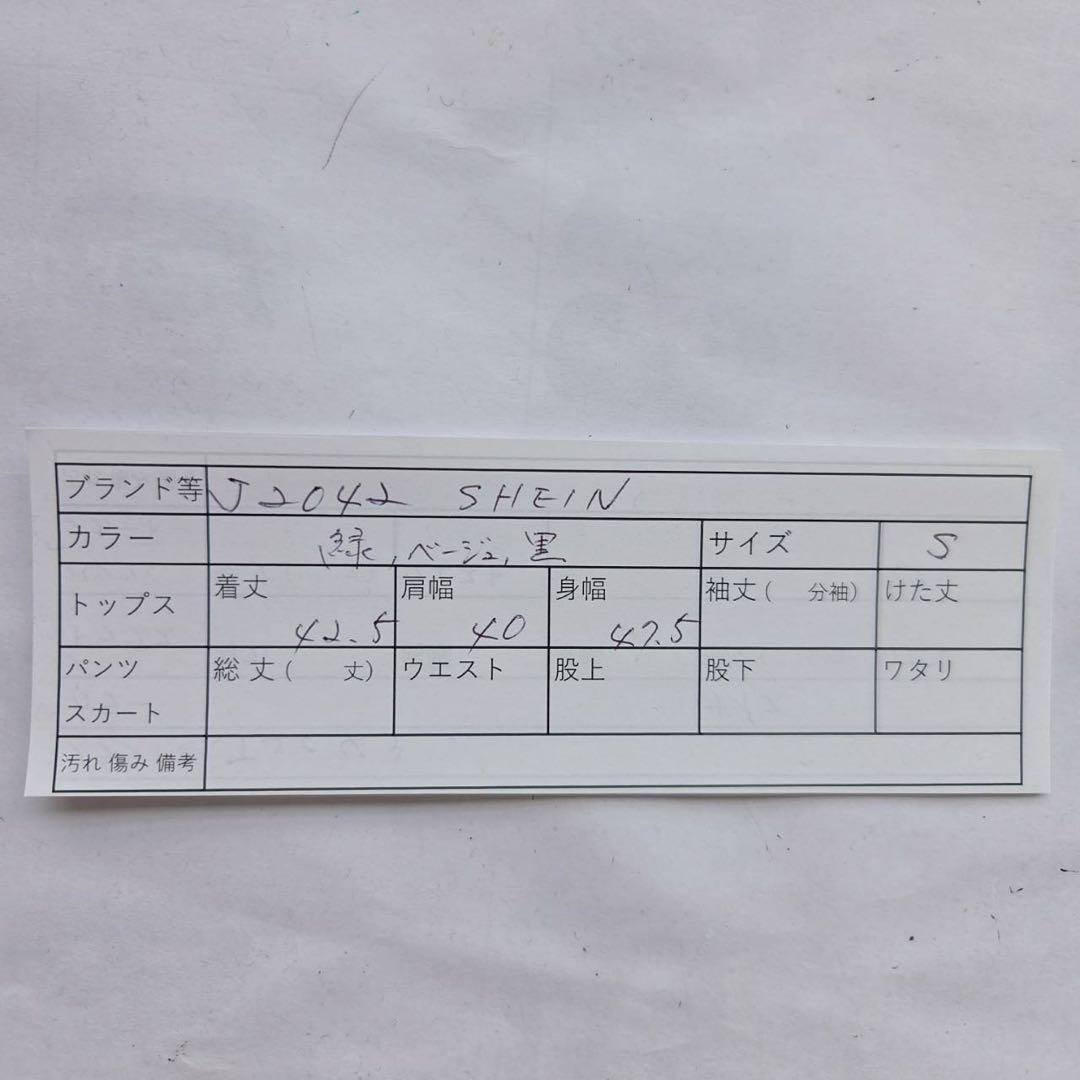 ブランド等 J2042 SHEIN
カラー 緑,ベージュ,黒 サイズ S
トップス 着丈 42.5 肩幅 40 身幅 47.5 袖丈( 分袖) けた丈
パンツ スカート 総丈( 丈) ウエスト 股上 股下 ワタリ
汚れ 傷み 備考